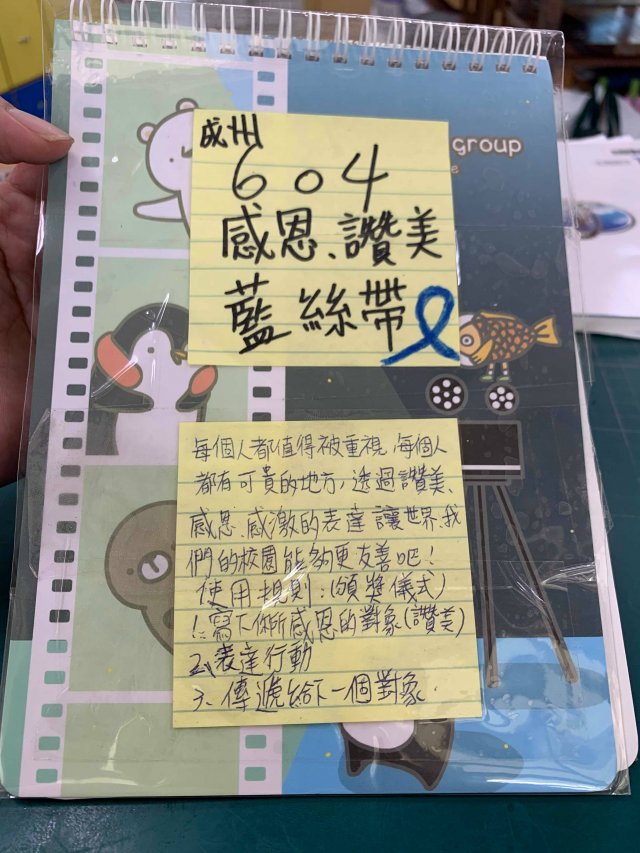 成州
604
感恩、讚美
藍絲帶
group
每個人都值得被重視,每個人
都有可貴的地方,透過讚美、
感恩、感激的表達讓世界、我
們的校園能夠更友善吧!
使用規則:(頒獎儀式)
1、寫下你所感恩的對象(讚美)
2、表達行動
3、傳遞給下一個對象.